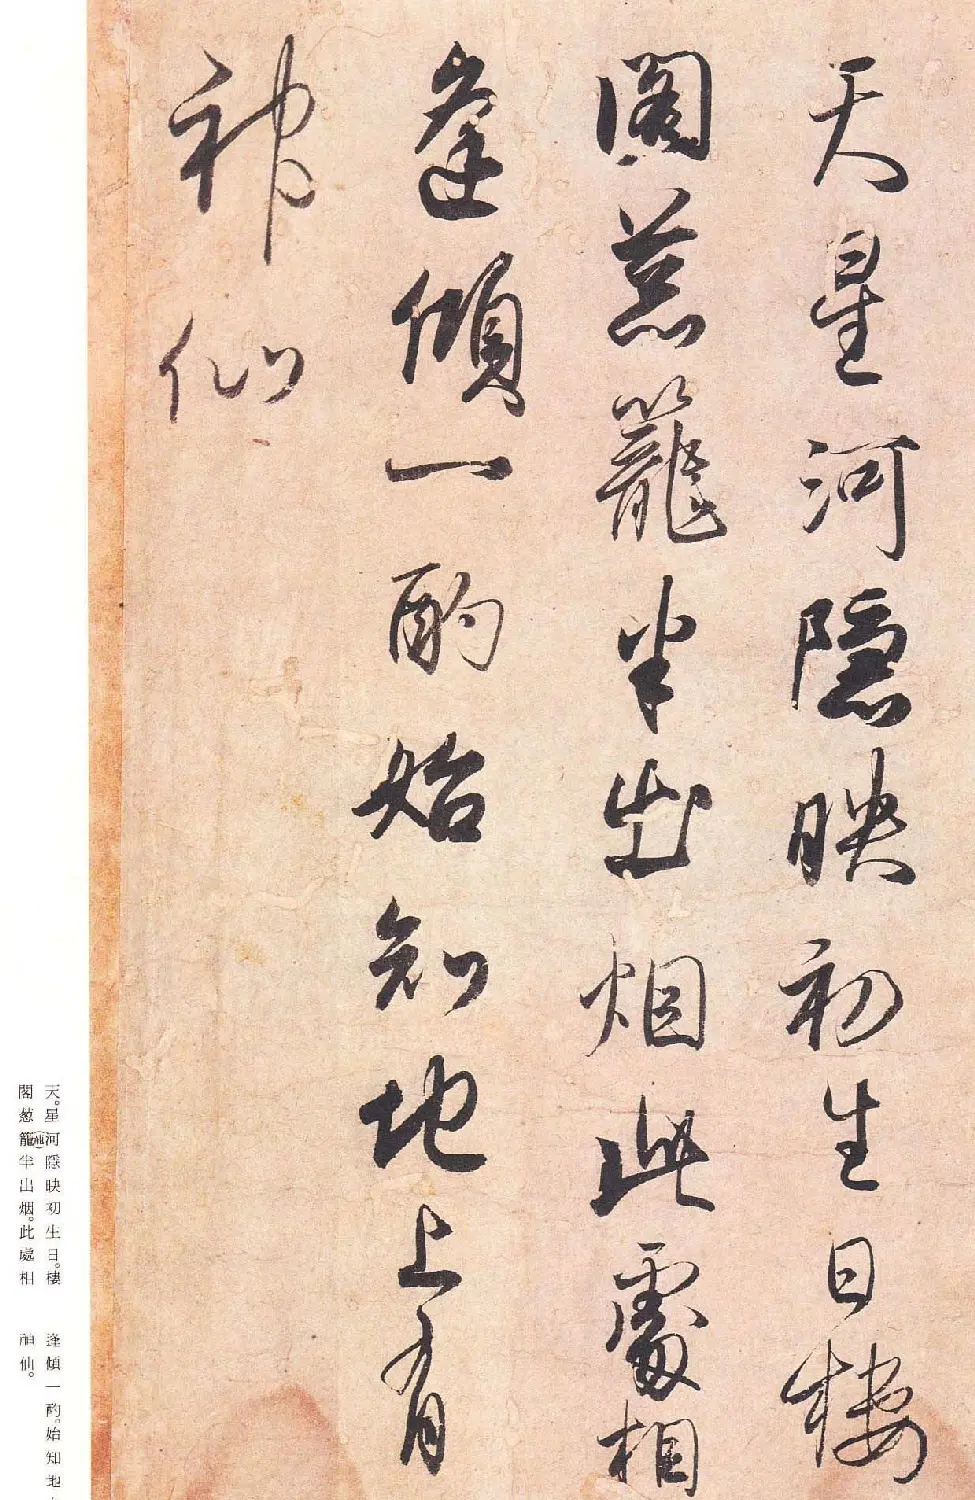 天星河隐映初生日樓
閣葱籠半出烟此處相
逢傾一酌始知地上有
神仙
天。星河隱映初生日。樓
閣葱籠(朧)半出烟。此處相
逢傾一酌。始知地
神仙。